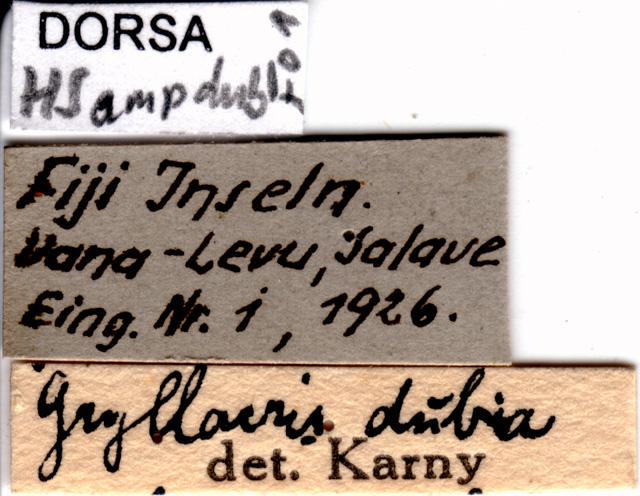 DORSA
HSampdubl
Fiji Inseln.
Vana-Levu, Salave
Eing. Nr. 1, 1926.
Gryllacris dubia
det. Karny